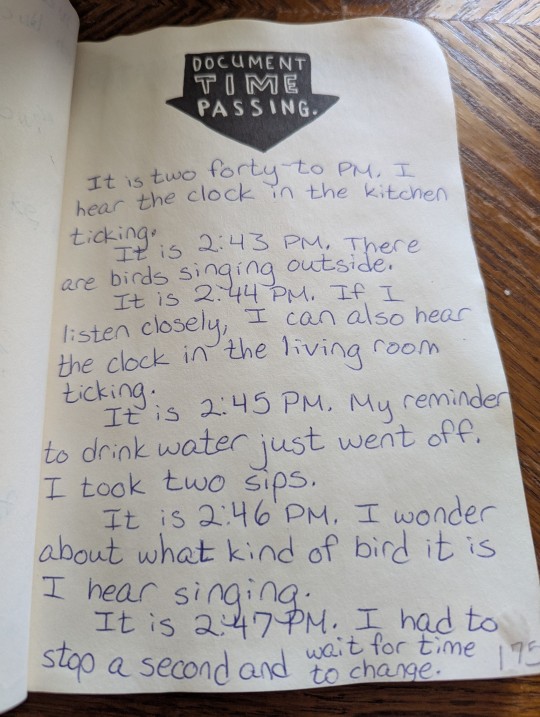 DOCUMENT
TIME
PASSING.
It is two forty-to PM. I
hear the clock in the kitchen
ticking.
It is 2:43 PM. There
are birds singing outside.
It is 2:44 PM. If I
listen closely, I can also hear
the clock in the living room
ticking.
It is 2:45 PM. My reminder
to drink water just went off.
I took two sips.
It is 2:46 PM. I wonder
about what kind of bird it is
I hear singing.
It is 2:47 PM. I had to
stop a second and wait for time
to change.
175